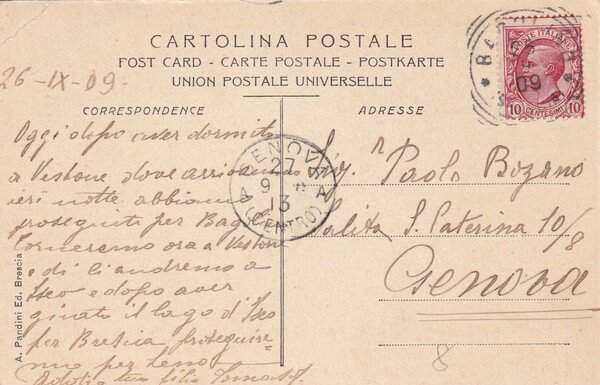 CARTOLINA POSTALE
POST CARD - CARTE POSTALE - POSTKARTE
UNION POSTALE UNIVERSELLE
26-IX-09-
CORRESPONDENCE
Oggi dopo aver dormito
a Vestone dove arrivammo
ieri notte abbiamo
proseguito per Bag
Torneremo ora a Vestone
e di lì andremo a
Iseo e dopo aver
girato il lago d'Iseo
per Brescia proseguire-
mo per
tuo figlio
A. Pandini Ed. Brescia
GENOVA
27
9
13
(CENTRO)
A A
ADRESSE
Sig.r Paolo Bozano
Salita S. Caterina 10/8
Genova
8
POSTE ITALIANE
10 CENTESIMI 10
09